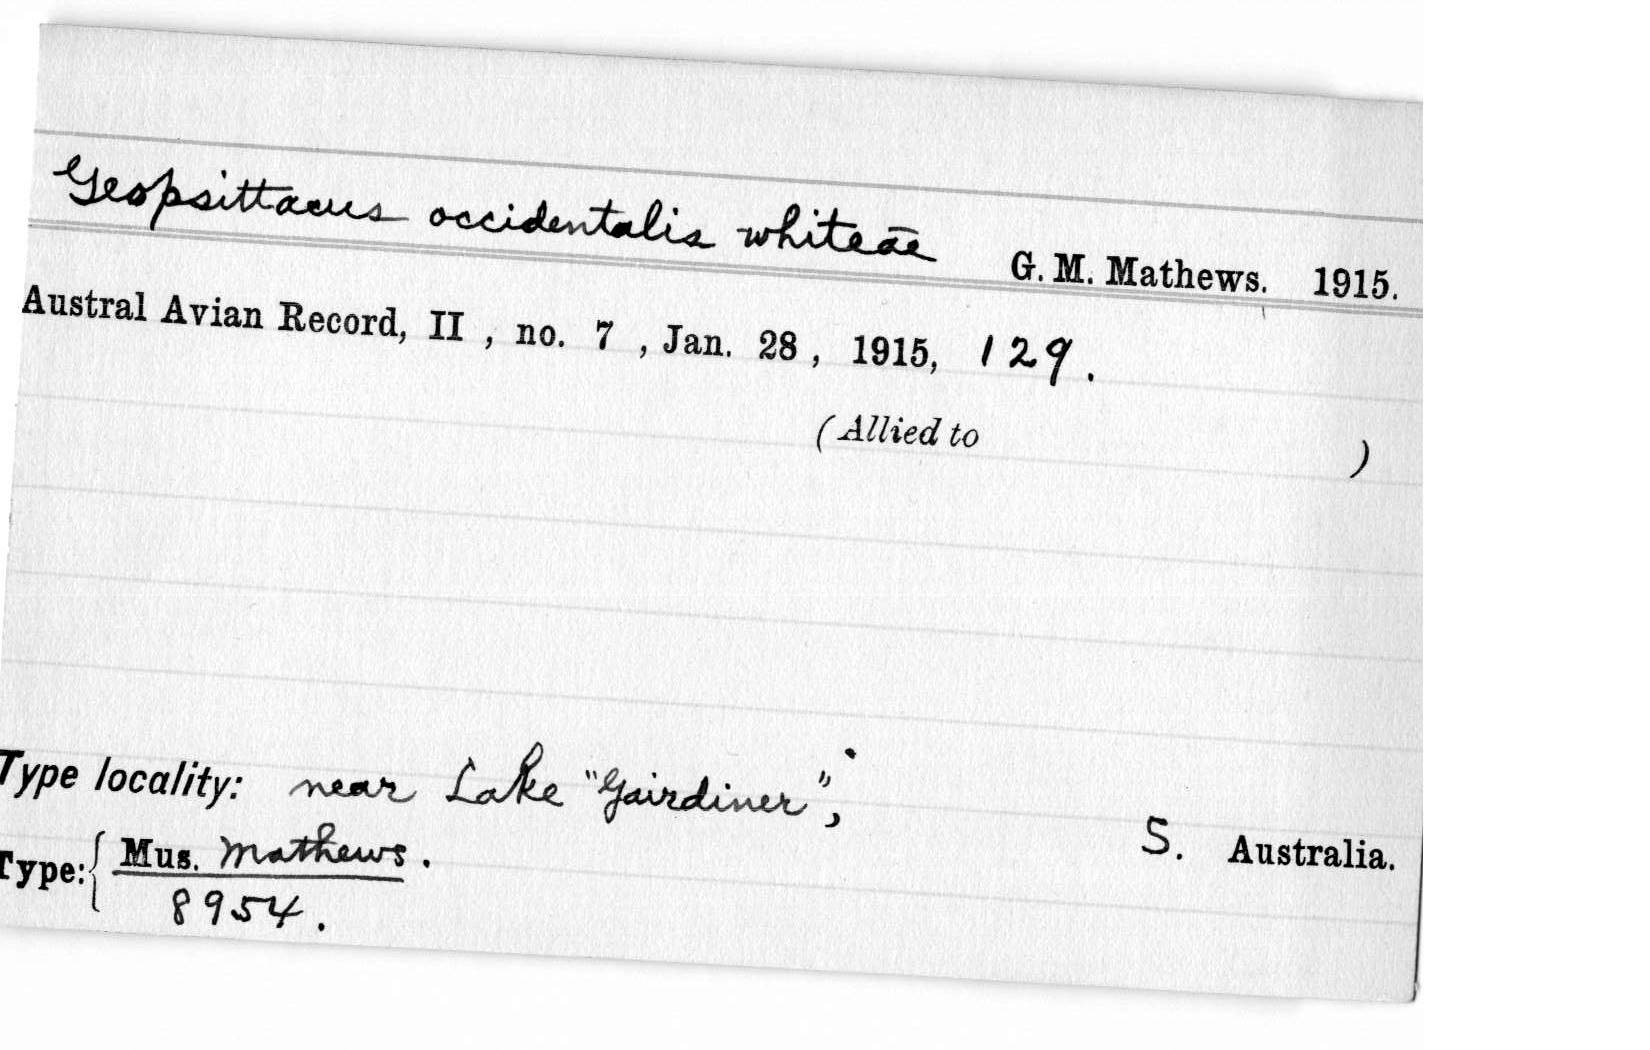 Geopsittacus occidentalis whiteae G. M. Mathews. 1915.
Austral Avian Record, II , no. 7 , Jan. 28 , 1915, 129.
(Allied to )
Type locality: near Lake "Gairdiner", S. Australia.
Type: { Mus. Mathews.
8954.